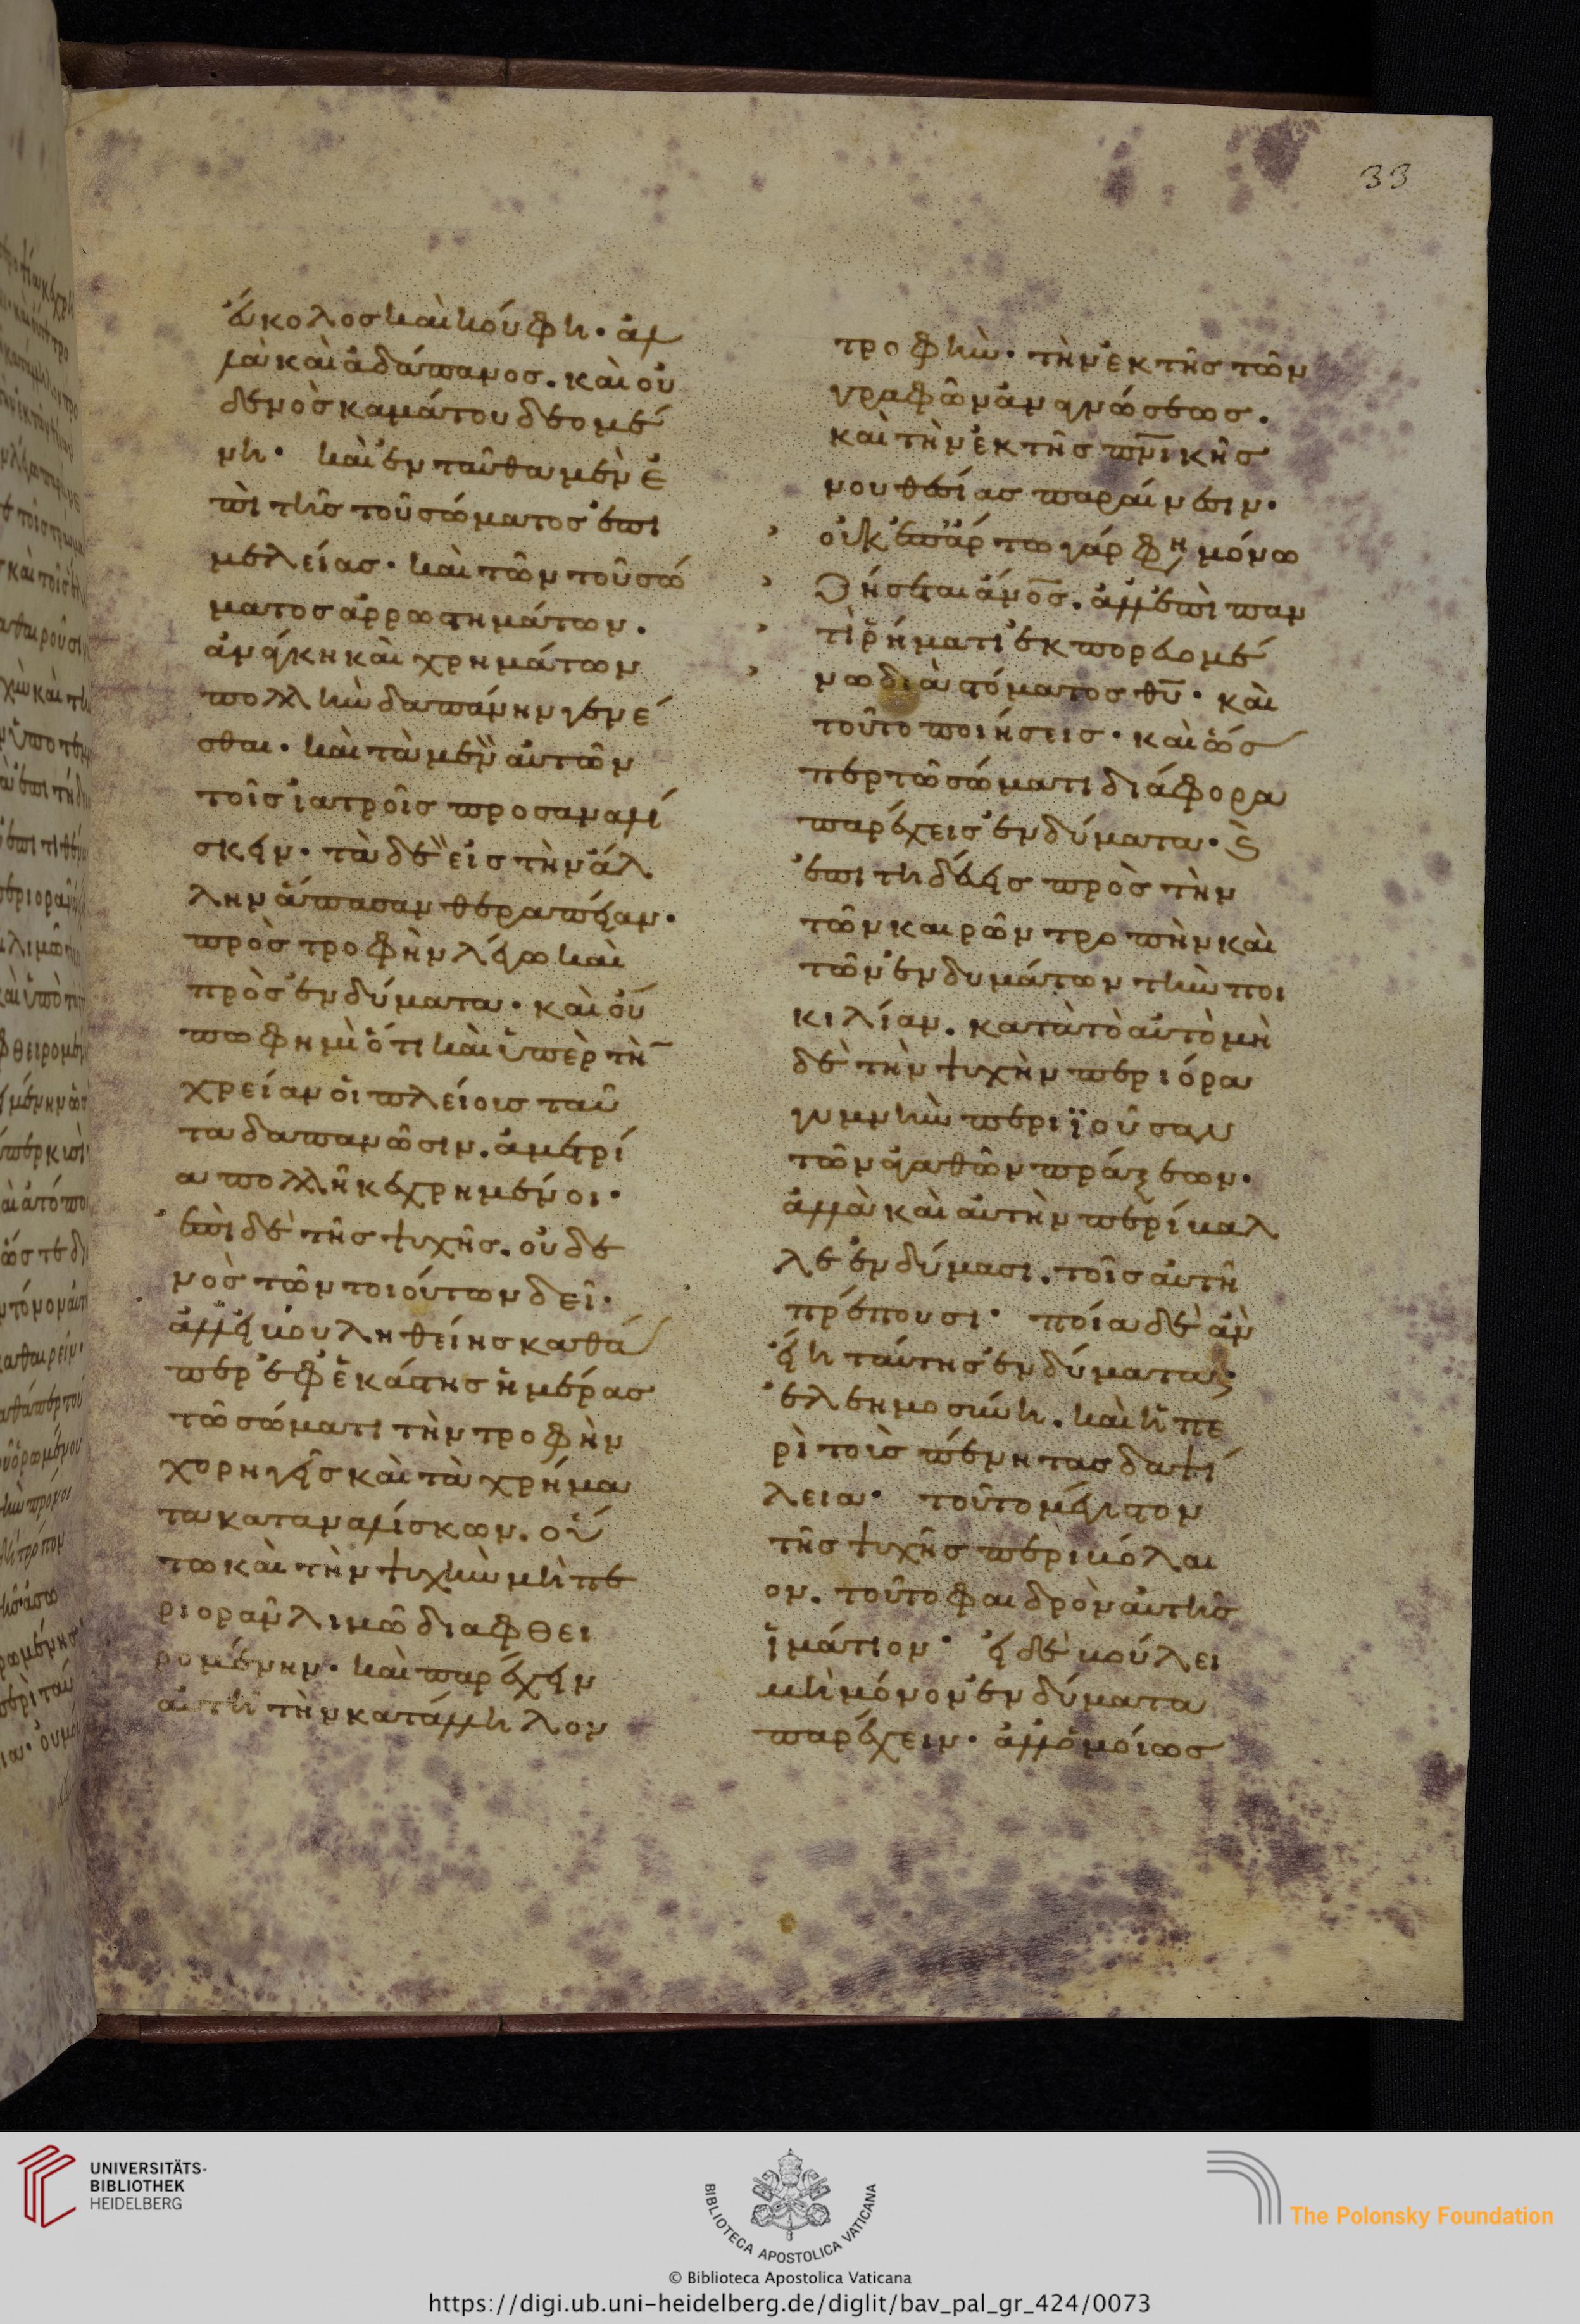 33
εὔκολος καὶ κούφη· ἀλ
λὰ καὶ ἀδάπανος. καὶ οὐ
δενὸς καμάτου δεομέ
νη· καὶ ἐνταῦθα μὲν ἐ
πὶ τῆς τοῦ σώματος ἐπι
μελείας· καὶ τῶν τοῦ σώ
ματος ἀρρωστημάτων.
ἀνάγκη καὶ χρημάτων
πολλὴν δαπάνην γενέ
σθαι· καὶ τὰ μὲν αὐτῶν
τοῖς ἰατροῖς προσαναλί
σκειν· τὰ δὲ εἰς τὴν ἄλ
λην ἅπασαν θεραπείαν·
πρὸς τροφὴν λέγω καὶ
πρὸς ἐνδύματα· καὶ οὔ
πω φημὶ ὅτι καὶ ὑπὲρ τὴν
χρείαν οἱ πλείους ταῦ
τα δαπανῶσιν. ἀμετρί
α πολλῆ κεχρημένοι·
ἐπὶ δὲ τῆς ψυχῆς. οὐδε
νὸς τῶν τοιούτων δεῖ·
ἀλλ εἰ βουληθείης καθά
περ ἐφ ἑκάστης ἡμέρας
τῶ σώματι τὴν τροφὴν
χορηγεῖς καὶ τὰ χρήμα
τα καταναλίσκων. οὕ
τω καὶ τὴν ψυχὴν μὴ πε
ριορᾶν λιμῶ διαφθει
ρομένην· καὶ παρέχειν
αὐτῆ τὴν κατάλληλον
τροφὴν· τὴν ἐκ τῆς τῶν
γραφῶν ἀναγνώσεως.
καὶ τὴν ἐκ τῆς πνικῆς
νουθεσίας παραίνεσιν·
οὐκ ἐπ ἄρτω γάρ φη μόνω
ζήσεται ἄνος. ἀλλ ἐπὶ παν
τὶ ῥήματι ἐκπορευομέ
νω διὰ στόματος θυ· καὶ
τοῦτο ποιήσεις· καὶ ὥσ
περ τῶ σώματι διάφορα
παρέχεις ἐνδύματα· καὶ
ἐπιτηδεύεις πρὸς τὴν
τῶν καιρῶν τροπὴν καὶ
τῶν ἐνδυμάτων τὴν ποι
κιλίαν. κατὰ τὸ αὐτὸ μὴ
δὲ τὴν ψυχὴν περιόρα
γυμνὴν περιϊοῦσαν
τῶν ἀγαθῶν πράξεων·
ἀλλὰ καὶ αὐτὴν περίβαλ
λε ἐνδύμασι. τοῖς αὐτῆ
πρέπουσι· ποία δὲ ἂν
εἴη ταύτης ἐνδύματα;
ἐλεημοσύνη. καὶ ἡ πε
ρὶ τοὺς πένητας δαψί
λεια· τοῦτο μέγιστον
τῆς ψυχῆς περιβόλαι
ον. τοῦτο φαιδρὸν αὐτῆς
ἱμάτιον· εἰ δὲ βούλει
μὴ μόνον ἐνδύματα
παρέχειν· ἀλλ ὁμοίως
UNIVERSITÄTS-
BIBLIOTHEK
HEIDELBERG
BIBLIOTECA APOSTOLICA VATICANA
The Polonsky Foundation
© Biblioteca Apostolica Vaticana
https://digi.ub.uni-heidelberg.de/diglit/bav_pal_gr_424/0073